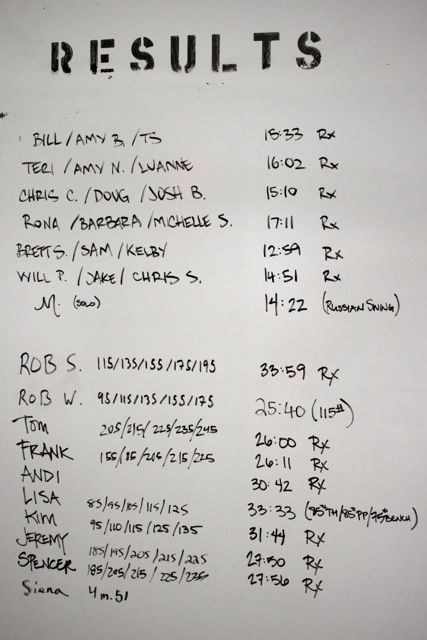 RESULTS
BILL/AMY B./TS 15:33 Rx
TERI/AMY N./LUANNE 16:02 Rx
CHRIS C./DOUG/JOSH B. 15:10 Rx
RONA/BARBARA/MICHELLE S. 17:11 Rx
BRETT S./SAM/KELBY 12:59 Rx
WILL P./JAKE/CHRIS S. 14:51 Rx
M. (SOLO) 14:22 (RUSSIAN SWING)
ROB S. 115/135/155/175/195 33:59 Rx
ROB W. 95/115/135/155/175 25:40 (115#)
Tom 205/215/225/235/245 26:00 Rx
FRANK 155/ /215/215/225 26:11 Rx
ANDI 30:42 Rx
LISA 85/95/105/115/125 33:33 (95#TH/85#PP/75#BENCH)
Kim 95/110/115/125/135 31:44 Rx
JEREMY 185/195/205/215/225 27:30 Rx
SPENCER 185/205/215/225/235 27:56 Rx
Siena 4m.51